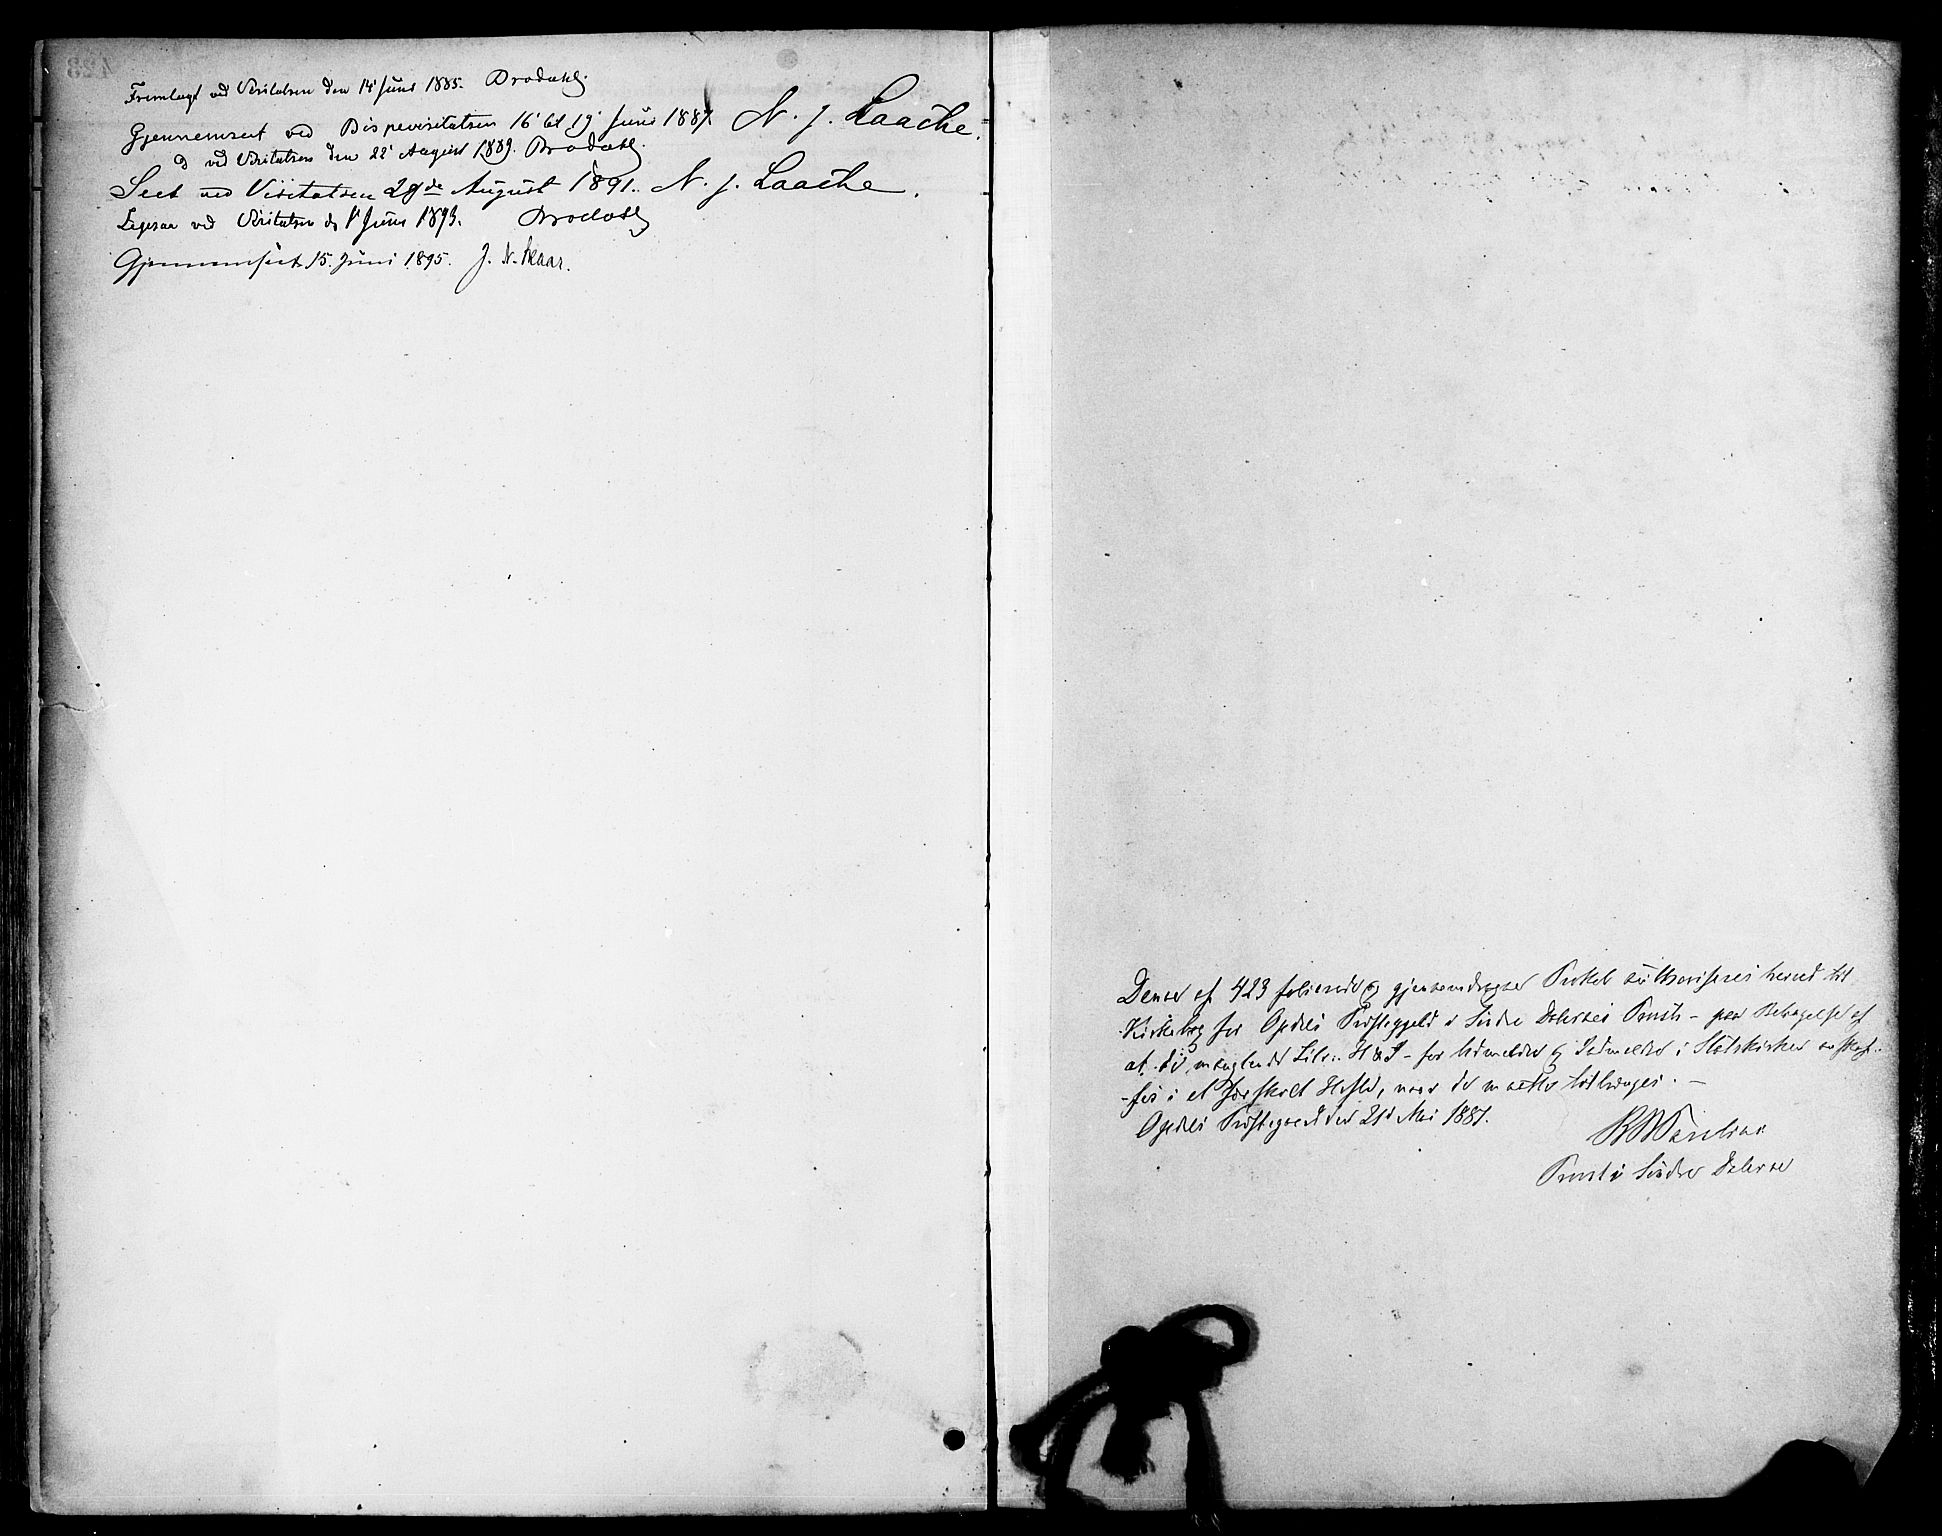 Fremlagt ved Visitatsen den 14' Juni 1885. Brodahl.
Gjennemseet ved Bispevisitatsen 16' til 19' Juni 1887 N. J. Laache.
D ved Visitatsen den 22' August 1889. Brodahl.
Seet ved Visitatsen 29de August 1891. N. J. Laache.
Ligesaa ved Visitatsen d. 1' Juni 1893. Brodahl
Gjennemseet 15. Juni 1895. J. N. Skaar.
423
Denne af 423 folierede og gjennemdragne Protokol authoriseres herved til
Kirkebog for Opdals Præstegjeld i Søndre Dalernes Provsti - paa Betragelse af
at de manglende Litr: H & I - for Udmeldte og Indmeldte i Statskirken anskaf-
fes i et særskilt Hefte, naar de maatte tiltrænges. -
Opdals Præstegaard den 21de Mai 1881.
Provst i Søndre Dalerne